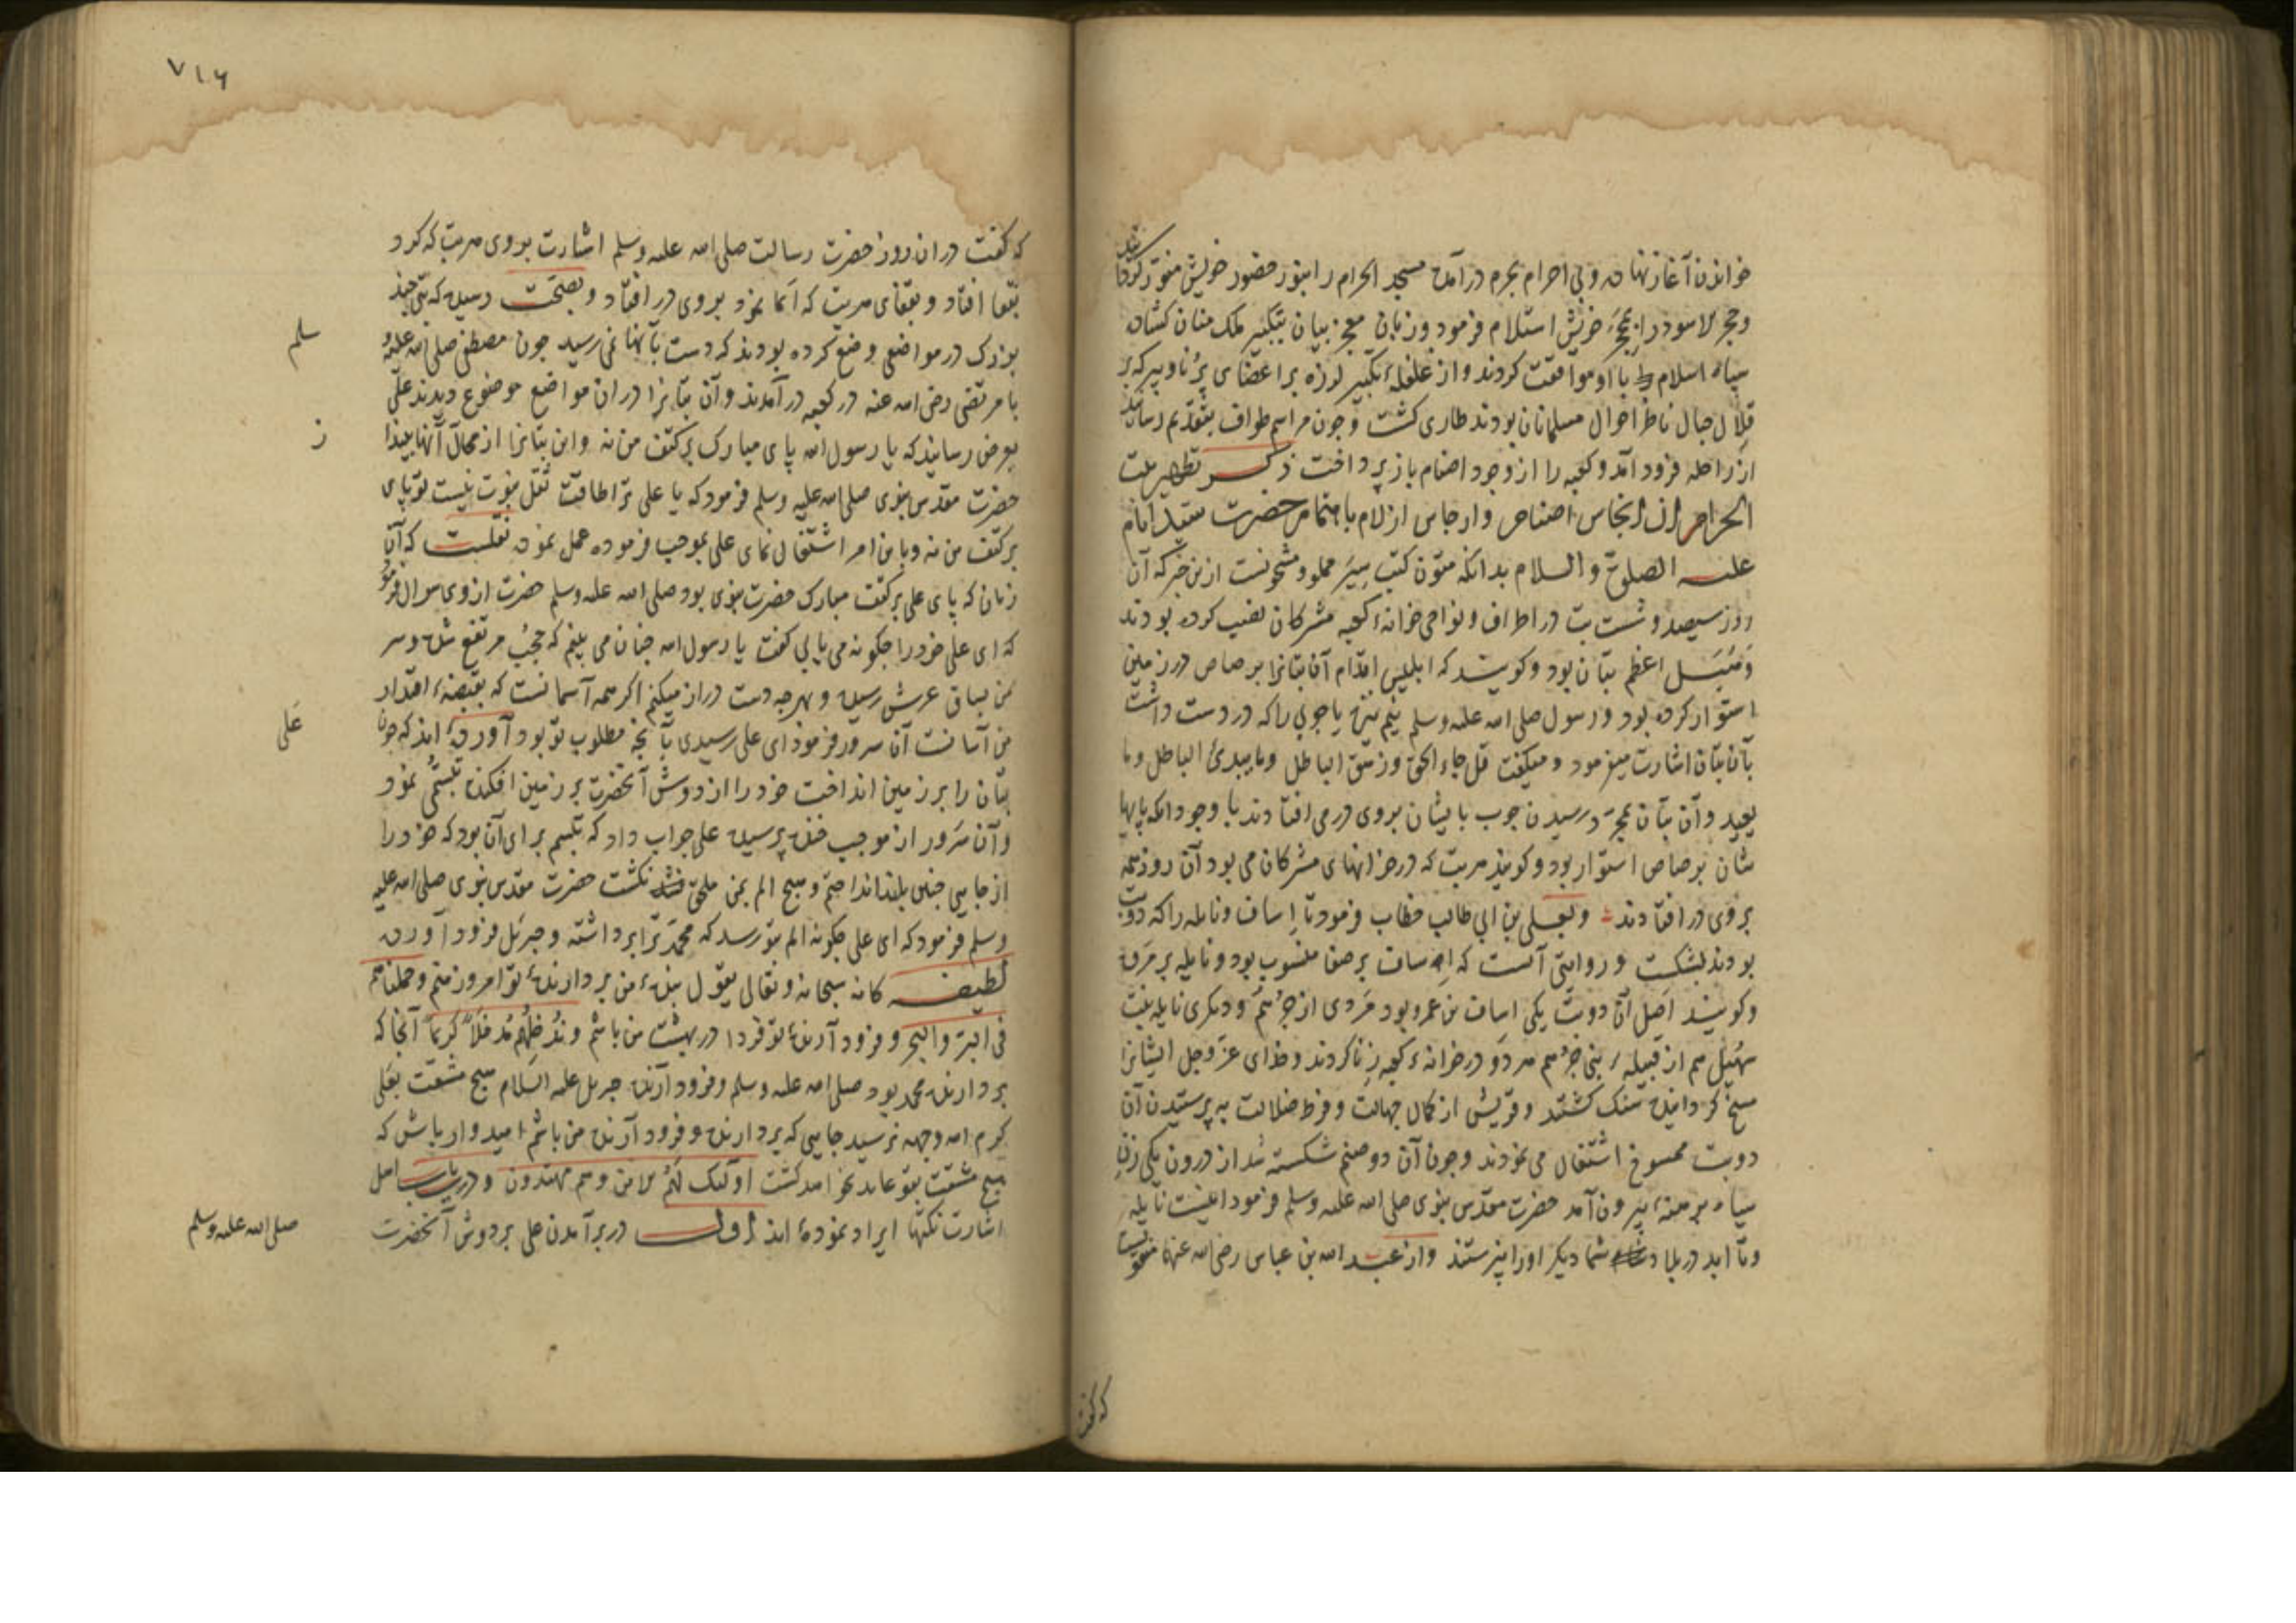 خواندن آغاز نهاد و بی احرام بحرم درآمده مسجد الحرام را بنور حضور خویش منور کردانید
و حجر الاسود را بمحجن خویش استلام فرمود و زبان معجز بیان بتکبیر ملک منان کشاده
سپاه اسلام با او موافقت کردند و از غلغله تکبیر لرزه بر اعضای برنا و پیر که بر
قلال جبال ناظر احوال مسلمانان بودند طاری کشت و چون مراسم طواف بتقدیم رسانید
از راحله فرود آمد و کعبه را از وجود اصنام باز پرداخت ذکر تطهیر بیت
الحرام از انجاس اصنام و ارجاس ازلام باهتمام حضرت سید انام
علیه الصلوة و السلام بدانکه متون کتب سیر مملو و مشحونست ازین خبر که آن
روز سیصد و شست بت در اطراف و نواحی خانه کعبه مشرکان نصب کرده بودند
و هبل اعظم بتان بود و کویند که ابلیس اقدام آن بتانرا برصاص در زمین
استوار کرده بود و رسول صلی الله علیه وسلم بنیم نیزه یا چوبی را که در دست داشت
بآن بتان اشارت میفرمود و میکفت قل جاء الحق و زهق الباطل و ما یبدئ الباطل و ما
یعید و آن بتان بمجرد رسیدن چوب بایشان بروی در می افتادند با وجود انکه پایها
شان برصاص استوار بود و کویند هر بت که در خزانهای مشرکان می بود آن روز همه
بروی در افتادند و بعلی بن ابی طالب خطاب فرمود تا اساف و نایله را که دو بت
بودند بشکست و روایتی آنست که اساف بر صفا منصوب بود و نایله بر مروه
و کویند اصل آن دو بت یکی اساف بن عمرو بود مردی از جرهم و دیکری نایله بنت
سهیل هم از قبیله بنی جرهم هر دو در خانه کعبه زنا کردند و خدای عز و جل ایشانرا
مسخ کردانیده سنک کشتند و قریش از کمال جهالت و فرط ضلالت به پرستیدن آن
دو بت ممسوخ اشتغال می نمودند و چون آن دو صنم شکسته شد از درون یکی زن
سیاه برهنه بیرون آمد حضرت مقدس نبوی صلی الله علیه وسلم فرمود اینست نایله
و تا ابد در بلاد شما دیکر او را نپرستند و از عبد الله بن عباس رضی الله عنهما
که کفت
۷۱۶
که کفت در ان روز حضرت رسالت صلی الله علیه وسلم اشارت بروی هر بت که کرد
بقفا افتاد و بقفای هر بت که ایما نمود بروی در افتاد و بصحت رسیده که بتی چند
بزرک در مواضعی وضع کرده بودند که دست بآنها نمی رسید چون مصطفی صلی الله علیه و
سلم
با مرتضی رضی الله عنه در کعبه در آمدند و آن بتانرا در ان مواضع موضوع دیدند علی
بعرض رسانید که یا رسول الله پای مبارک بر کتف من نه و این بتانرا از محال آنها بینداز
حضرت مقدس نبوی صلی الله علیه وسلم فرمود که یا علی ترا طاقت ثقل نبوت نیست تو پای
بر کتف من نه و باین امر اشتغال نمای علی بموجب فرموده عمل نمود نقلست که آن
زمان که پای علی بر کتف مبارک حضرت نبوی بود صلی الله علیه وسلم حضرت از وی سوال فرمود
که ای علی خود را چکونه می یابی کفت یا رسول الله چنان می بینم که حجب مرتفع شده و سر
من بساق عرش رسیده و بهرچه دست دراز میکنم اکر همه آسمانست که بقبضه اقتدار
من آسانست آن سرور فرمود ای علی رسیدی بآنچه مطلوب تو بود آورده اند که چون
علی
بتان را بر زمین انداخت خود را از دوش آنحضرت بر زمین افکنده تبسمی نمود
و آن سرور از موجب خنده پرسید علی جواب داد که تبسم برای آن بود که خود را
از جایی چنین بلند انداختم و هیچ الم بمن ملحق نکشت حضرت مقدس نبوی صلی الله علیه
وسلم فرمود که ای علی چکونه الم بتو رسد که محمد ترا برداشته و جبرئیل فرود آورده
لطیفه کانه سبحانه و تعالی یقول بنده من بردارنده تو امروز منم و حملناهم
فی البر و البحر و فرود آرنده تو فردا در بهشت من باشم و ندخلهم مدخلا کریما آنجا که
بردارنده محمد بود صلی الله علیه وسلم و فرود آرنده جبریل علیه السلام هیچ مشقت بعلی
کرم الله وجهه نرسید جایی که بردارنده و فرود آرنده من باشم امیدوار باش که
هیچ مشقت بتو عاید نخواهد کشت اولئک لهم الامن و هم مهتدون و درین باب اهل
اشارت نکتها ایراد نموده اند اول در برآمدن علی بر دوش آنحضرت
صلی الله علیه وسلم